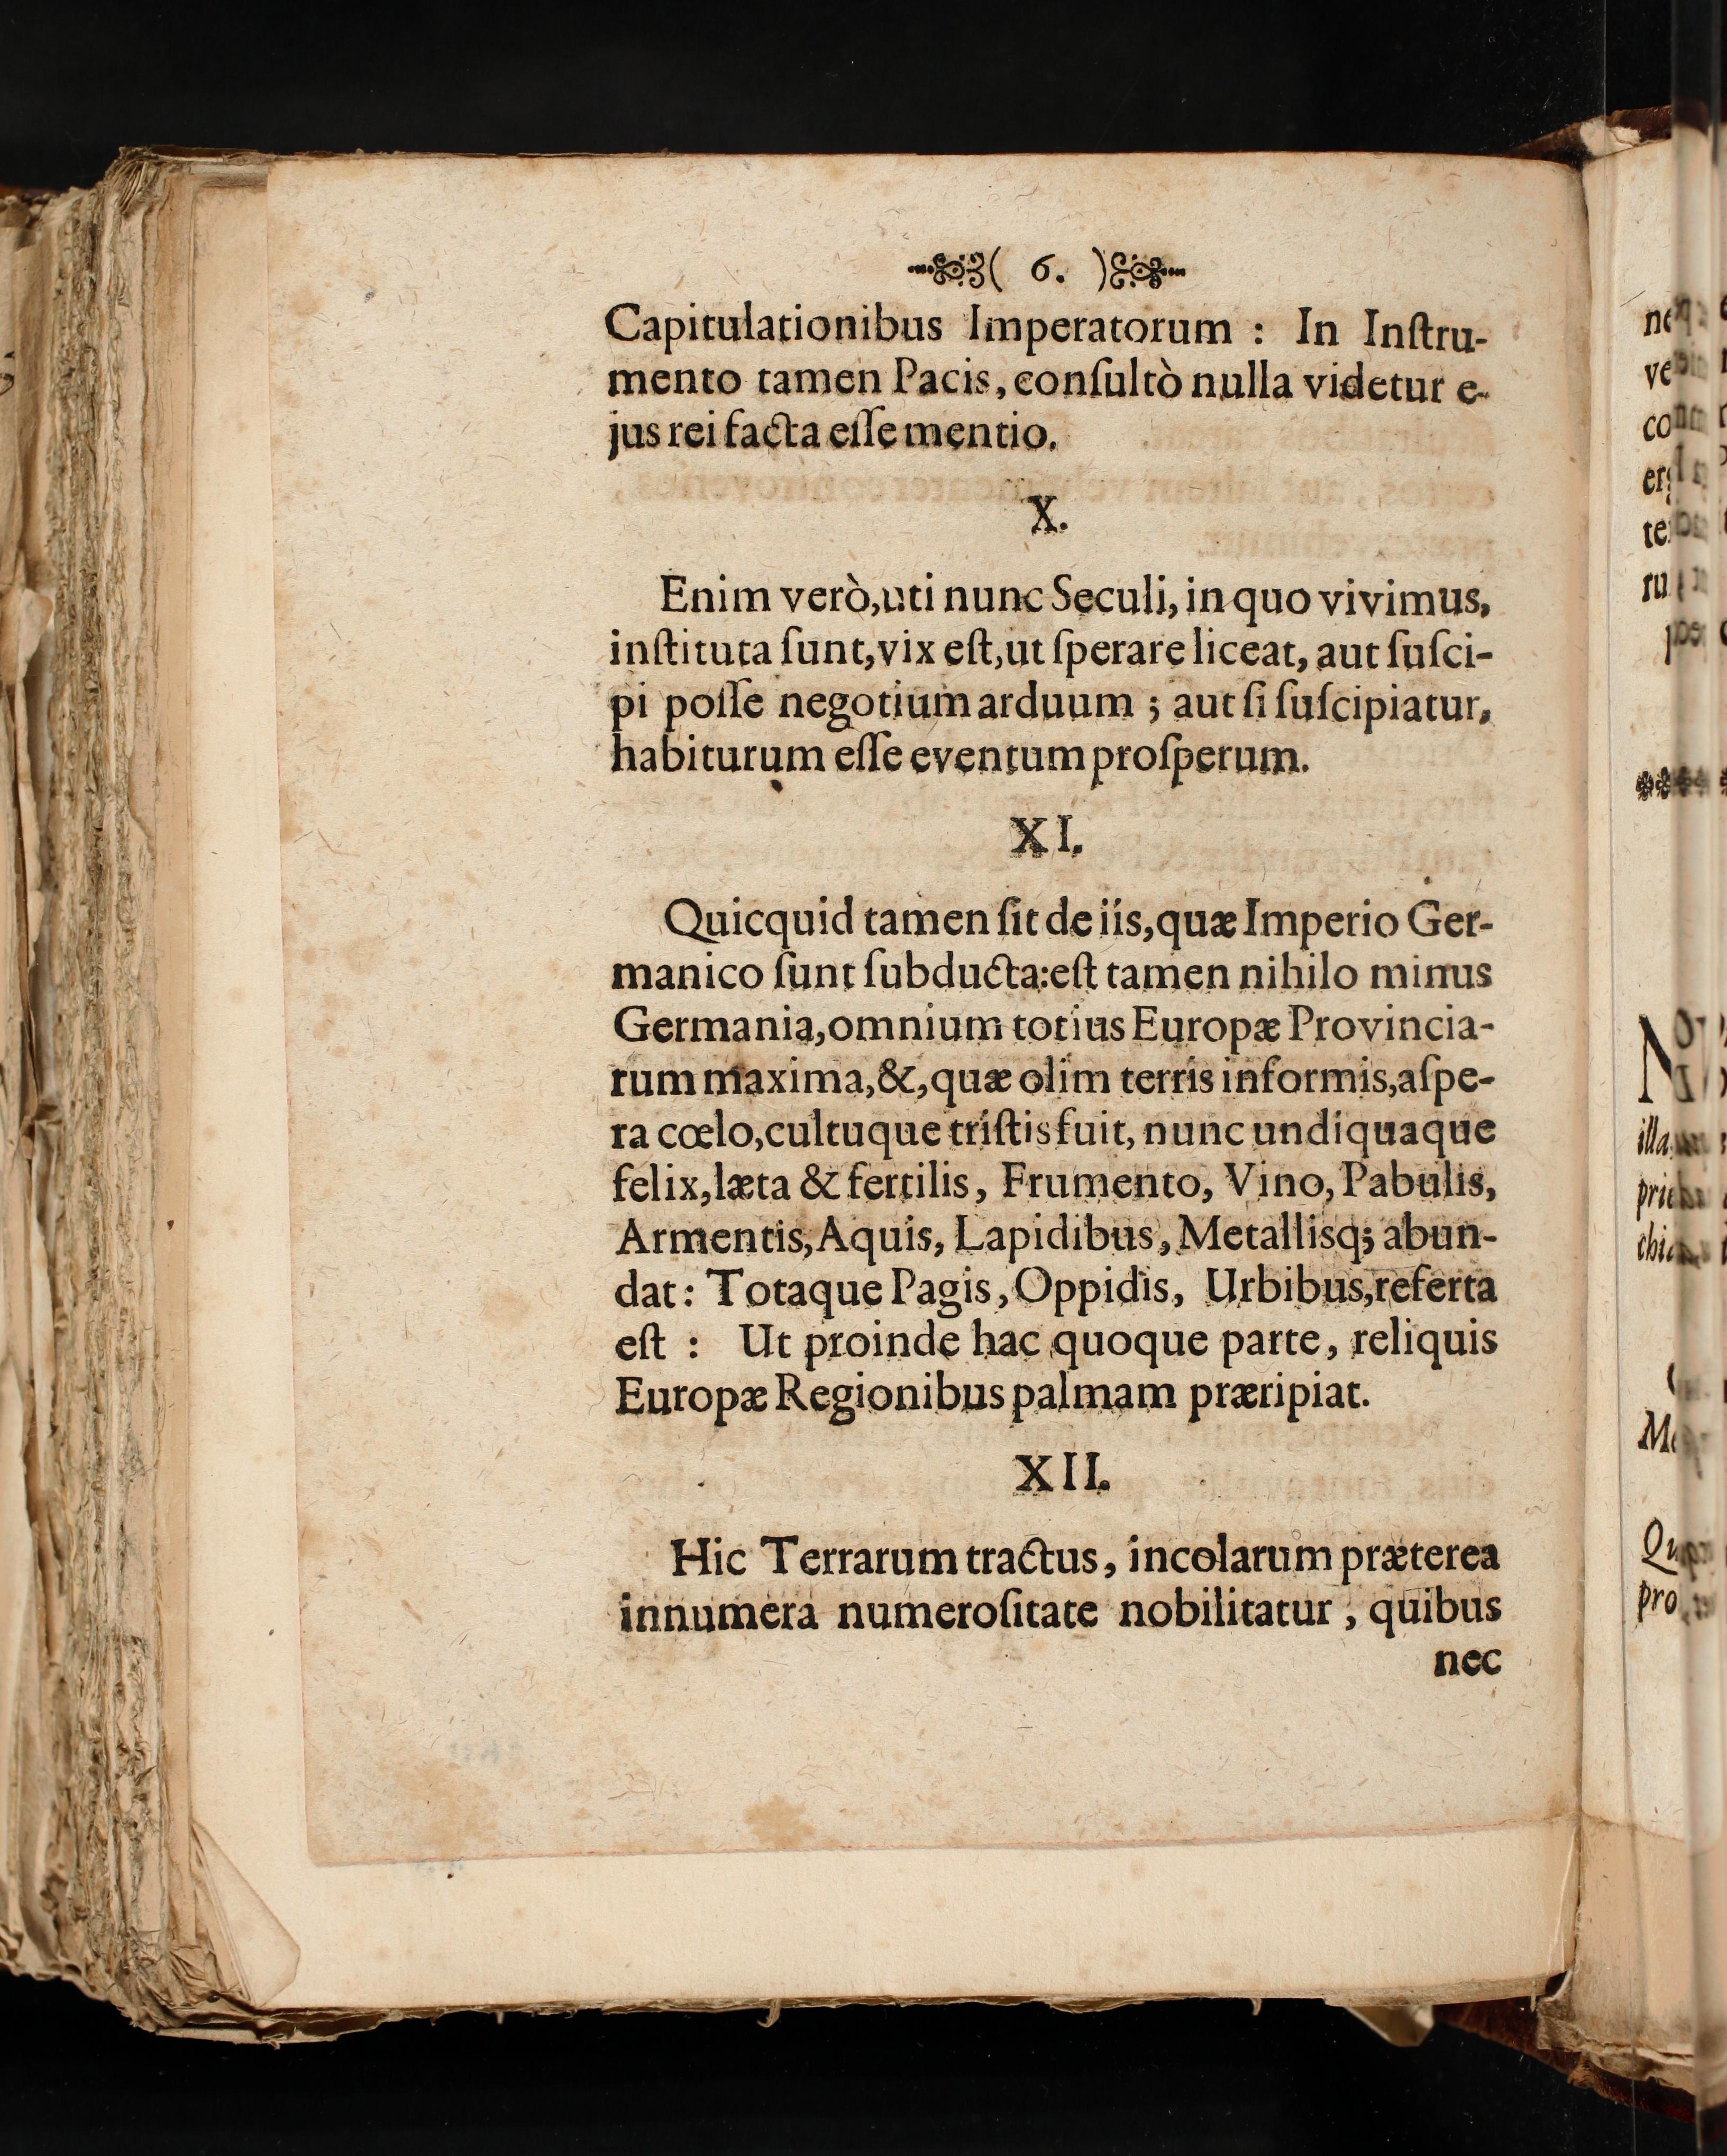 ( 6. )
Capitulationibus Imperatorum : In Inſtru-
mento tamen Pacis, conſultò nulla videtur e-
jus rei facta eſſe mentio.
X.
Enim verò, uti nunc Seculi, in quo vivimus,
inſtituta ſunt, vix eſt, ut ſperare liceat, aut ſuſci-
pi poſſe negotium arduum ; aut ſi ſuſcipiatur,
habiturum eſſe eventum proſperum.
XI.
Quicquid tamen ſit de iis, quæ Imperio Ger-
manico ſunt ſubducta: eſt tamen nihilo minus
Germania, omnium totius Europæ Provincia-
rum maxima, &, quæ olim terris informis, aſpe-
ra cœlo, cultuque triſtis fuit, nunc undiquaque
felix, læta & fertilis, Frumento, Vino, Pabulis,
Armentis, Aquis, Lapidibus, Metallisq; abun-
dat : Totaque Pagis, Oppidis, Urbibus, referta
eſt : Ut proinde hac quoque parte, reliquis
Europæ Regionibus palmam præripiat.
XII.
Hic Terrarum tractus, incolarum præterea
innumera numeroſitate nobilitatur, quibus
nec